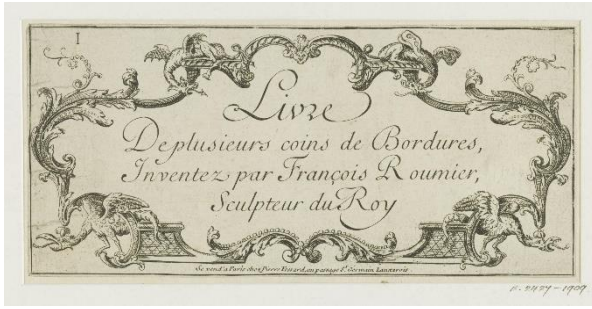 1
Livre
De plusieurs coins de Bordures,
Inventez par François Roumier,
Sculpteur du Roy
Se vend a Paris chez Pierre Berard, au passage St. Germain Lauxerois
E.2427-1909